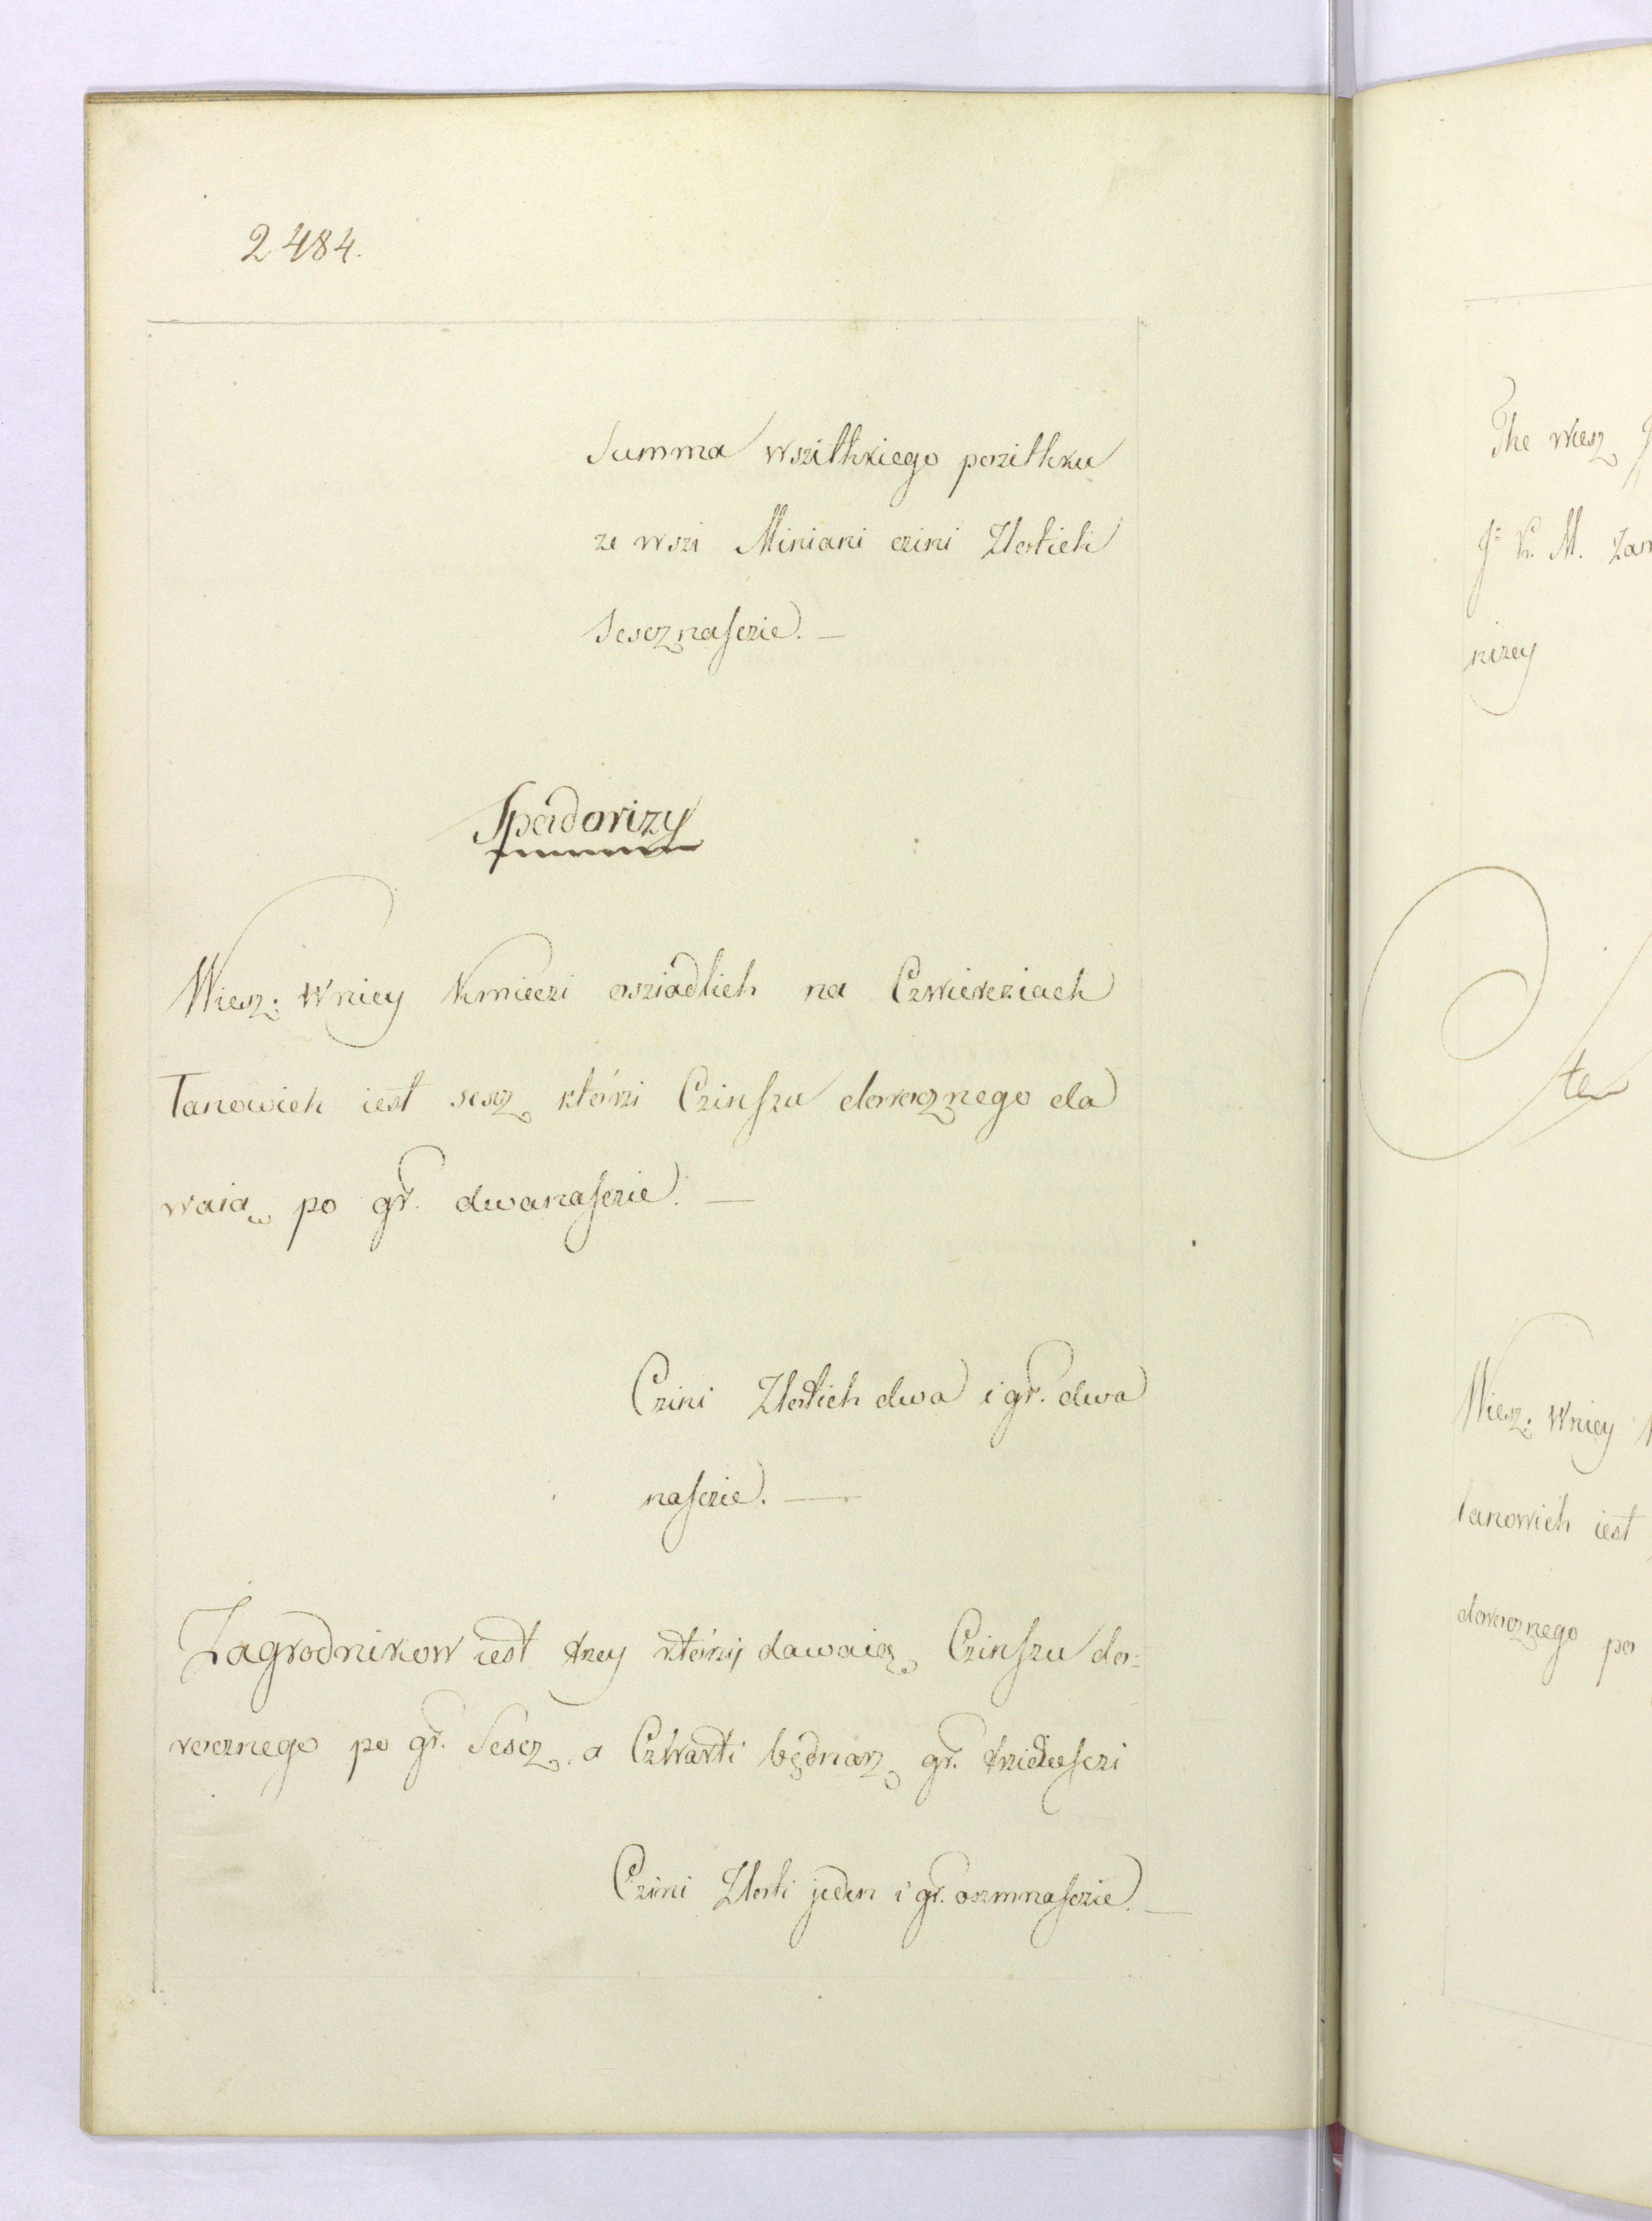 2484.
Summa wszithkiego pozithku
ze wszi Miniani czini Złotich
Sescznasczie. —
Spadovizy
Wiesz: wniey Kmieczi osziadlich na Czwiercziach
Łanowich iest sesz którzi Czinszu dorocznego da
waią po gr. dwanasczie. —
Czini Złotich dwa i gr. dwa
nasczie. —
Zagrodnikow iest trzey którzij dawaią Czinszu do:
rocznego po gr. Sescz, a Czwarti będnarz gr. trzidzesczi
Czini Złoti jeden i gr. oszmnasczie. —
The wiesz
J: K. M.
nizey
Wiesz: wniey
łanowich iest
dorocznego po